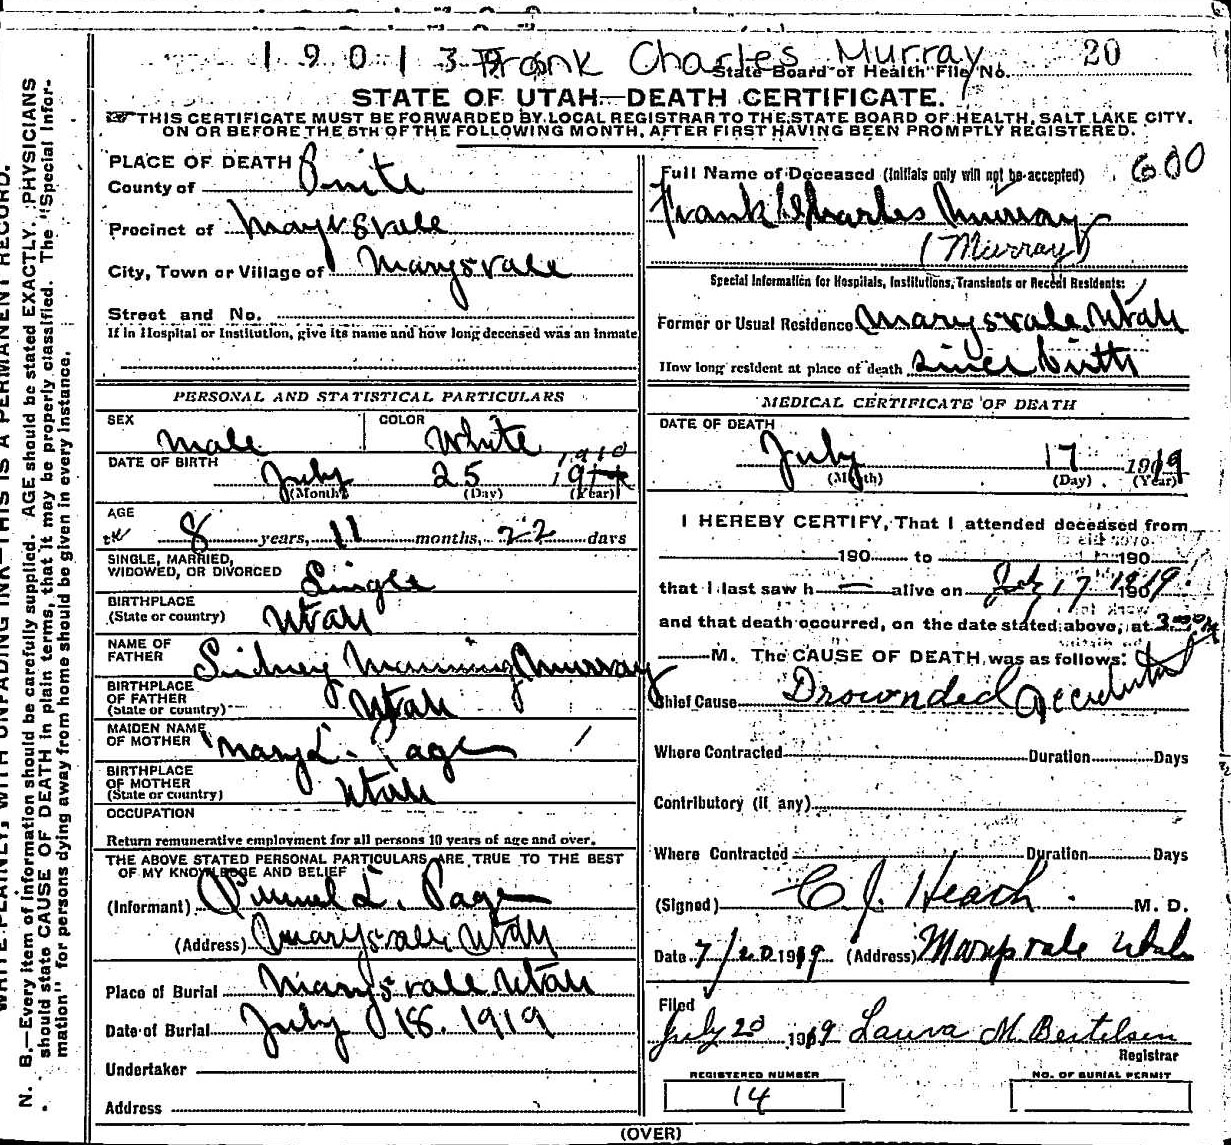 1 9 0 1 3 Frank Charles Murray 20
State Board of Health File No.
STATE OF UTAH—DEATH CERTIFICATE.
THIS CERTIFICATE MUST BE FORWARDED BY LOCAL REGISTRAR TO THE STATE BOARD OF HEALTH, SALT LAKE CITY,
ON OR BEFORE THE 5TH OF THE FOLLOWING MONTH, AFTER FIRST HAVING BEEN PROMPTLY REGISTERED.
PLACE OF DEATH
County of Piute
Precinct of Marysvale
City, Town or Village of Marysvale
Street and No.
If in Hospital or Institution, give its name and how long deceased was an inmate
PERSONAL AND STATISTICAL PARTICULARS
SEX Male COLOR White
DATE OF BIRTH July 25 1910
(Month) (Day) (Year)
AGE
8 years, 11 months, 22 days
SINGLE, MARRIED,
WIDOWED, OR DIVORCED Single
BIRTHPLACE
(State or country) Utah
NAME OF
FATHER Sidney Manning Murray
BIRTHPLACE
OF FATHER
(State or country) Utah
MAIDEN NAME
OF MOTHER Mary L. Page
BIRTHPLACE
OF MOTHER
(State or country) Utah
OCCUPATION
Return remunerative employment for all persons 10 years of age and over.
THE ABOVE STATED PERSONAL PARTICULARS ARE TRUE TO THE BEST
OF MY KNOWLEDGE AND BELIEF
(Informant) L. Page
(Address) Marysvale Utah
Place of Burial Marysvale Utah
Date of Burial July 18. 1919
Undertaker
Address
600
Full Name of Deceased (Initials only will not be accepted)
Frank Charles Murray
(Murray)
Special Information for Hospitals, Institutions, Transients or Recent Residents:
Former or Usual Residence Marysvale, Utah
How long resident at place of death since birth
MEDICAL CERTIFICATE OF DEATH
DATE OF DEATH
July 17 1919
(Month) (Day) (Year)
I HEREBY CERTIFY, That I attended deceased from
190 to 190
that I last saw h — alive on July 17 1919
and that death occurred, on the date stated above, at 3
M. The CAUSE OF DEATH was as follows:
Chief Cause Drownded Accidental
Where Contracted Duration Days
Contributory (if any)
Where Contracted Duration Days
(Signed) C. J. Heath M. D.
Date 7/20 1919 (Address) Marysvale Utah
Filed
July 20 1919 Laura M. Bertelsen
Registrar
REGISTERED NUMBER
14
NO. OF BURIAL PERMIT
(OVER)
WRITE PLAINLY, WITH UNFADING INK—THIS IS A PERMANENT RECORD.
N. B.—Every item of information should be carefully supplied. AGE should be stated EXACTLY. PHYSICIANS
should state CAUSE OF DEATH in plain terms, that it may be properly classified. The "Special Infor-
mation" for persons dying away from home should be given in every instance.